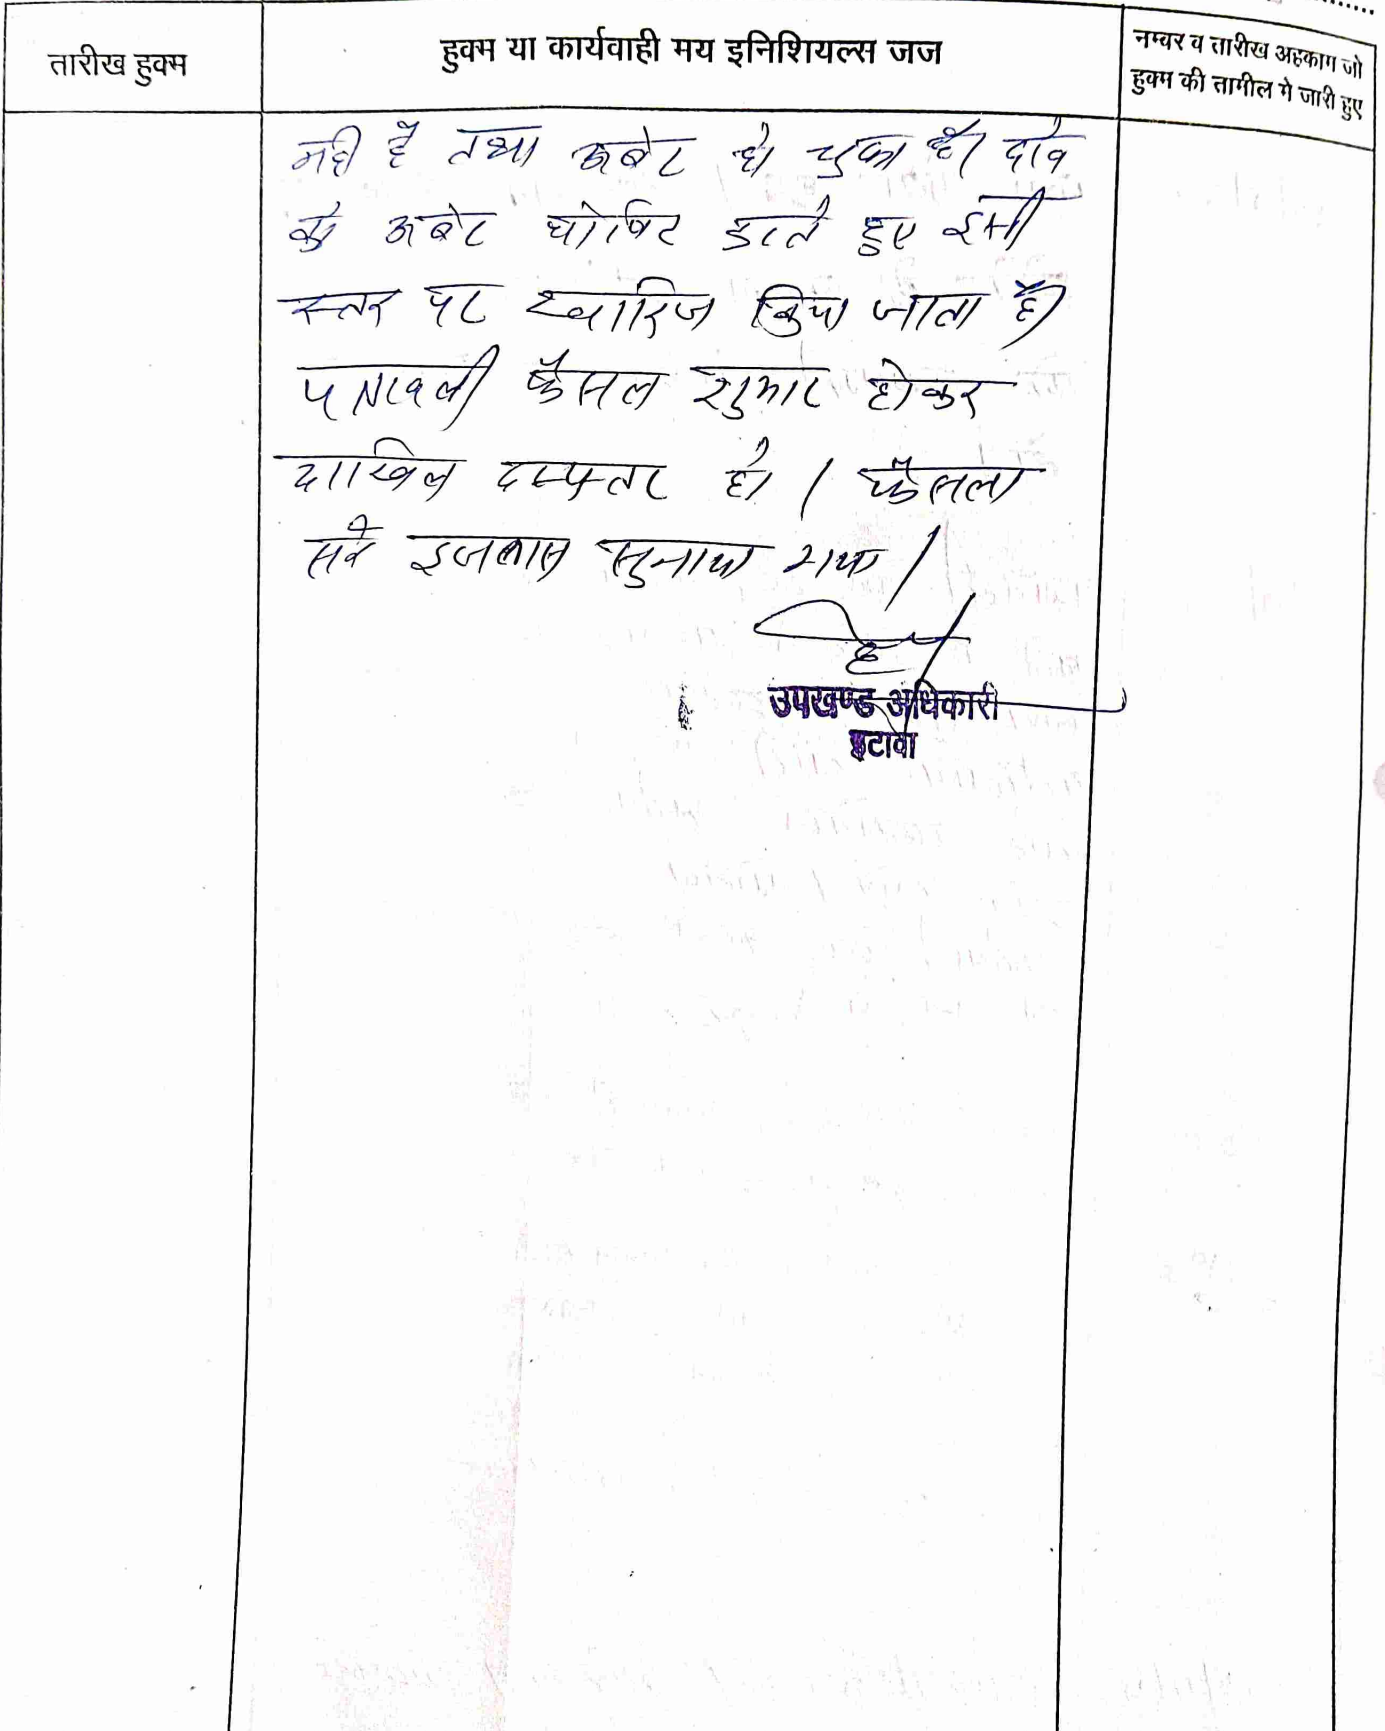 तारीख हुक्म
हुक्म या कार्यवाही मय इनिशियल्स जज
नम्बर व तारीख अहकाम जो
हुक्म की तामील मे जारी हुए
नही है तथा अबेट हो चुका है। दावे
को अबेट घोषित करते हुए इसी
स्तर पर खारिज किया जाता है।
पत्रावली फैसल शुमार होकर
दाखिल दफ्तर हो। फैसला
सरे इजलास सुनाया गया।
उपखण्ड अधिकारी
इटावा